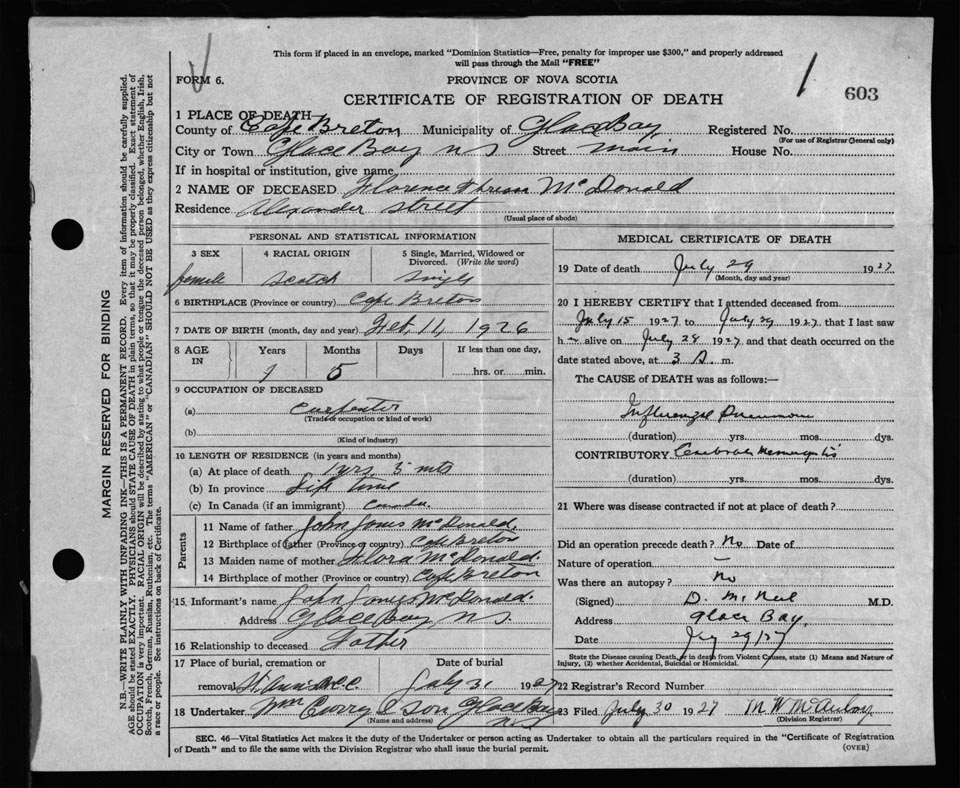 This form if placed in an envelope, marked "Dominion Statistics—Free, penalty for improper use $300," and properly addressed
will pass through the Mail "FREE"
FORM 6.
PROVINCE OF NOVA SCOTIA
1
603
CERTIFICATE OF REGISTRATION OF DEATH
1 PLACE OF DEATH
County of Cape Breton Municipality of Glace Bay Registered No.
(For use of Registrar General only)
City or Town Glace Bay N S Street Main House No.
If in hospital or institution, give name
2 NAME OF DECEASED Florence McDonald
Residence Alexander Street
(Usual place of abode)
PERSONAL AND STATISTICAL INFORMATION
3 SEX 4 RACIAL ORIGIN 5 Single, Married, Widowed or Divorced. (Write the word)
female Scotch Single
6 BIRTHPLACE (Province or country) Cape Breton
7 DATE OF BIRTH (month, day and year) Feb, 11, 1926
8 AGE IN Years Months Days If less than one day,
1 5 hrs. or min.
9 OCCUPATION OF DECEASED
(a) Carpenter
(Trade or occupation or kind of work)
(b)
(Kind of industry)
10 LENGTH OF RESIDENCE (in years and months)
(a) At place of death 1 yrs 5 mts
(b) In province Life time
(c) In Canada (if an immigrant) Canada.
Parents
11 Name of father John James McDonald.
12 Birthplace of father (Province or country) Cape Breton
13 Maiden name of mother Flora McDonald.
14 Birthplace of mother (Province or country) Cape Breton
15 Informant's name John James McDonald.
Address Glace Bay N S.
16 Relationship to deceased Father
17 Place of burial, cremation or Date of burial
removal St Anns July 31 1927
18 Undertaker Wm Curry & Son Glace Bay
(Name and address) N S
MEDICAL CERTIFICATE OF DEATH
19 Date of death July 29 1927
(Month, day and year)
20 I HEREBY CERTIFY that I attended deceased from
July 15 1927 to July 29 1927 that I last saw
h alive on July 28 1927 and that death occurred on the
date stated above, at 3 A. m.
The CAUSE of DEATH was as follows:—
Influenzal Pneumonia
(duration) yrs. mos. dys.
CONTRIBUTORY Cerebral
(duration) yrs. mos. dys.
21 Where was disease contracted if not at place of death?
Did an operation precede death? No Date of
Nature of operation —
Was there an autopsy? No
(Signed) D. McNeil M.D.
Address Glace Bay.
Date 29/27
State the Disease causing Death, or in death from Violent Causes, state (1) Means and Nature of
Injury, (2) whether Accidental, Suicidal or Homicidal.
22 Registrar's Record Number
23 Filed July 30 1927 M. W. McAulay
(Division Registrar)
SEC. 46—Vital Statistics Act makes it the duty of the Undertaker or person acting as Undertaker to obtain all the particulars required in the "Certificate of Registration
of Death" and to file the same with the Division Registrar who shall issue the burial permit.
(OVER)
MARGIN RESERVED FOR BINDING
N.B.—WRITE PLAINLY WITH UNFADING INK—THIS IS A PERMANENT RECORD. Every item of information should be carefully supplied.
AGE should be stated EXACTLY. PHYSICIANS should STATE CAUSE OF DEATH in plain terms, so that it may be properly classified. Exact statement of
OCCUPATION is very important. RACIAL ORIGIN will be described by stating to what people or tongue the deceased person belonged, whether English, Irish,
Scotch, French, German, Russian, Ruthenian, etc. The terms "AMERICAN" or "CANADIAN" SHOULD NOT BE USED as they express citizenship but not
a race or people. See instructions on back of Certificate.